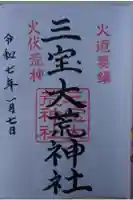 火迺要鎮
三宝大荒神社
火伏荒神
令和七年一月七日